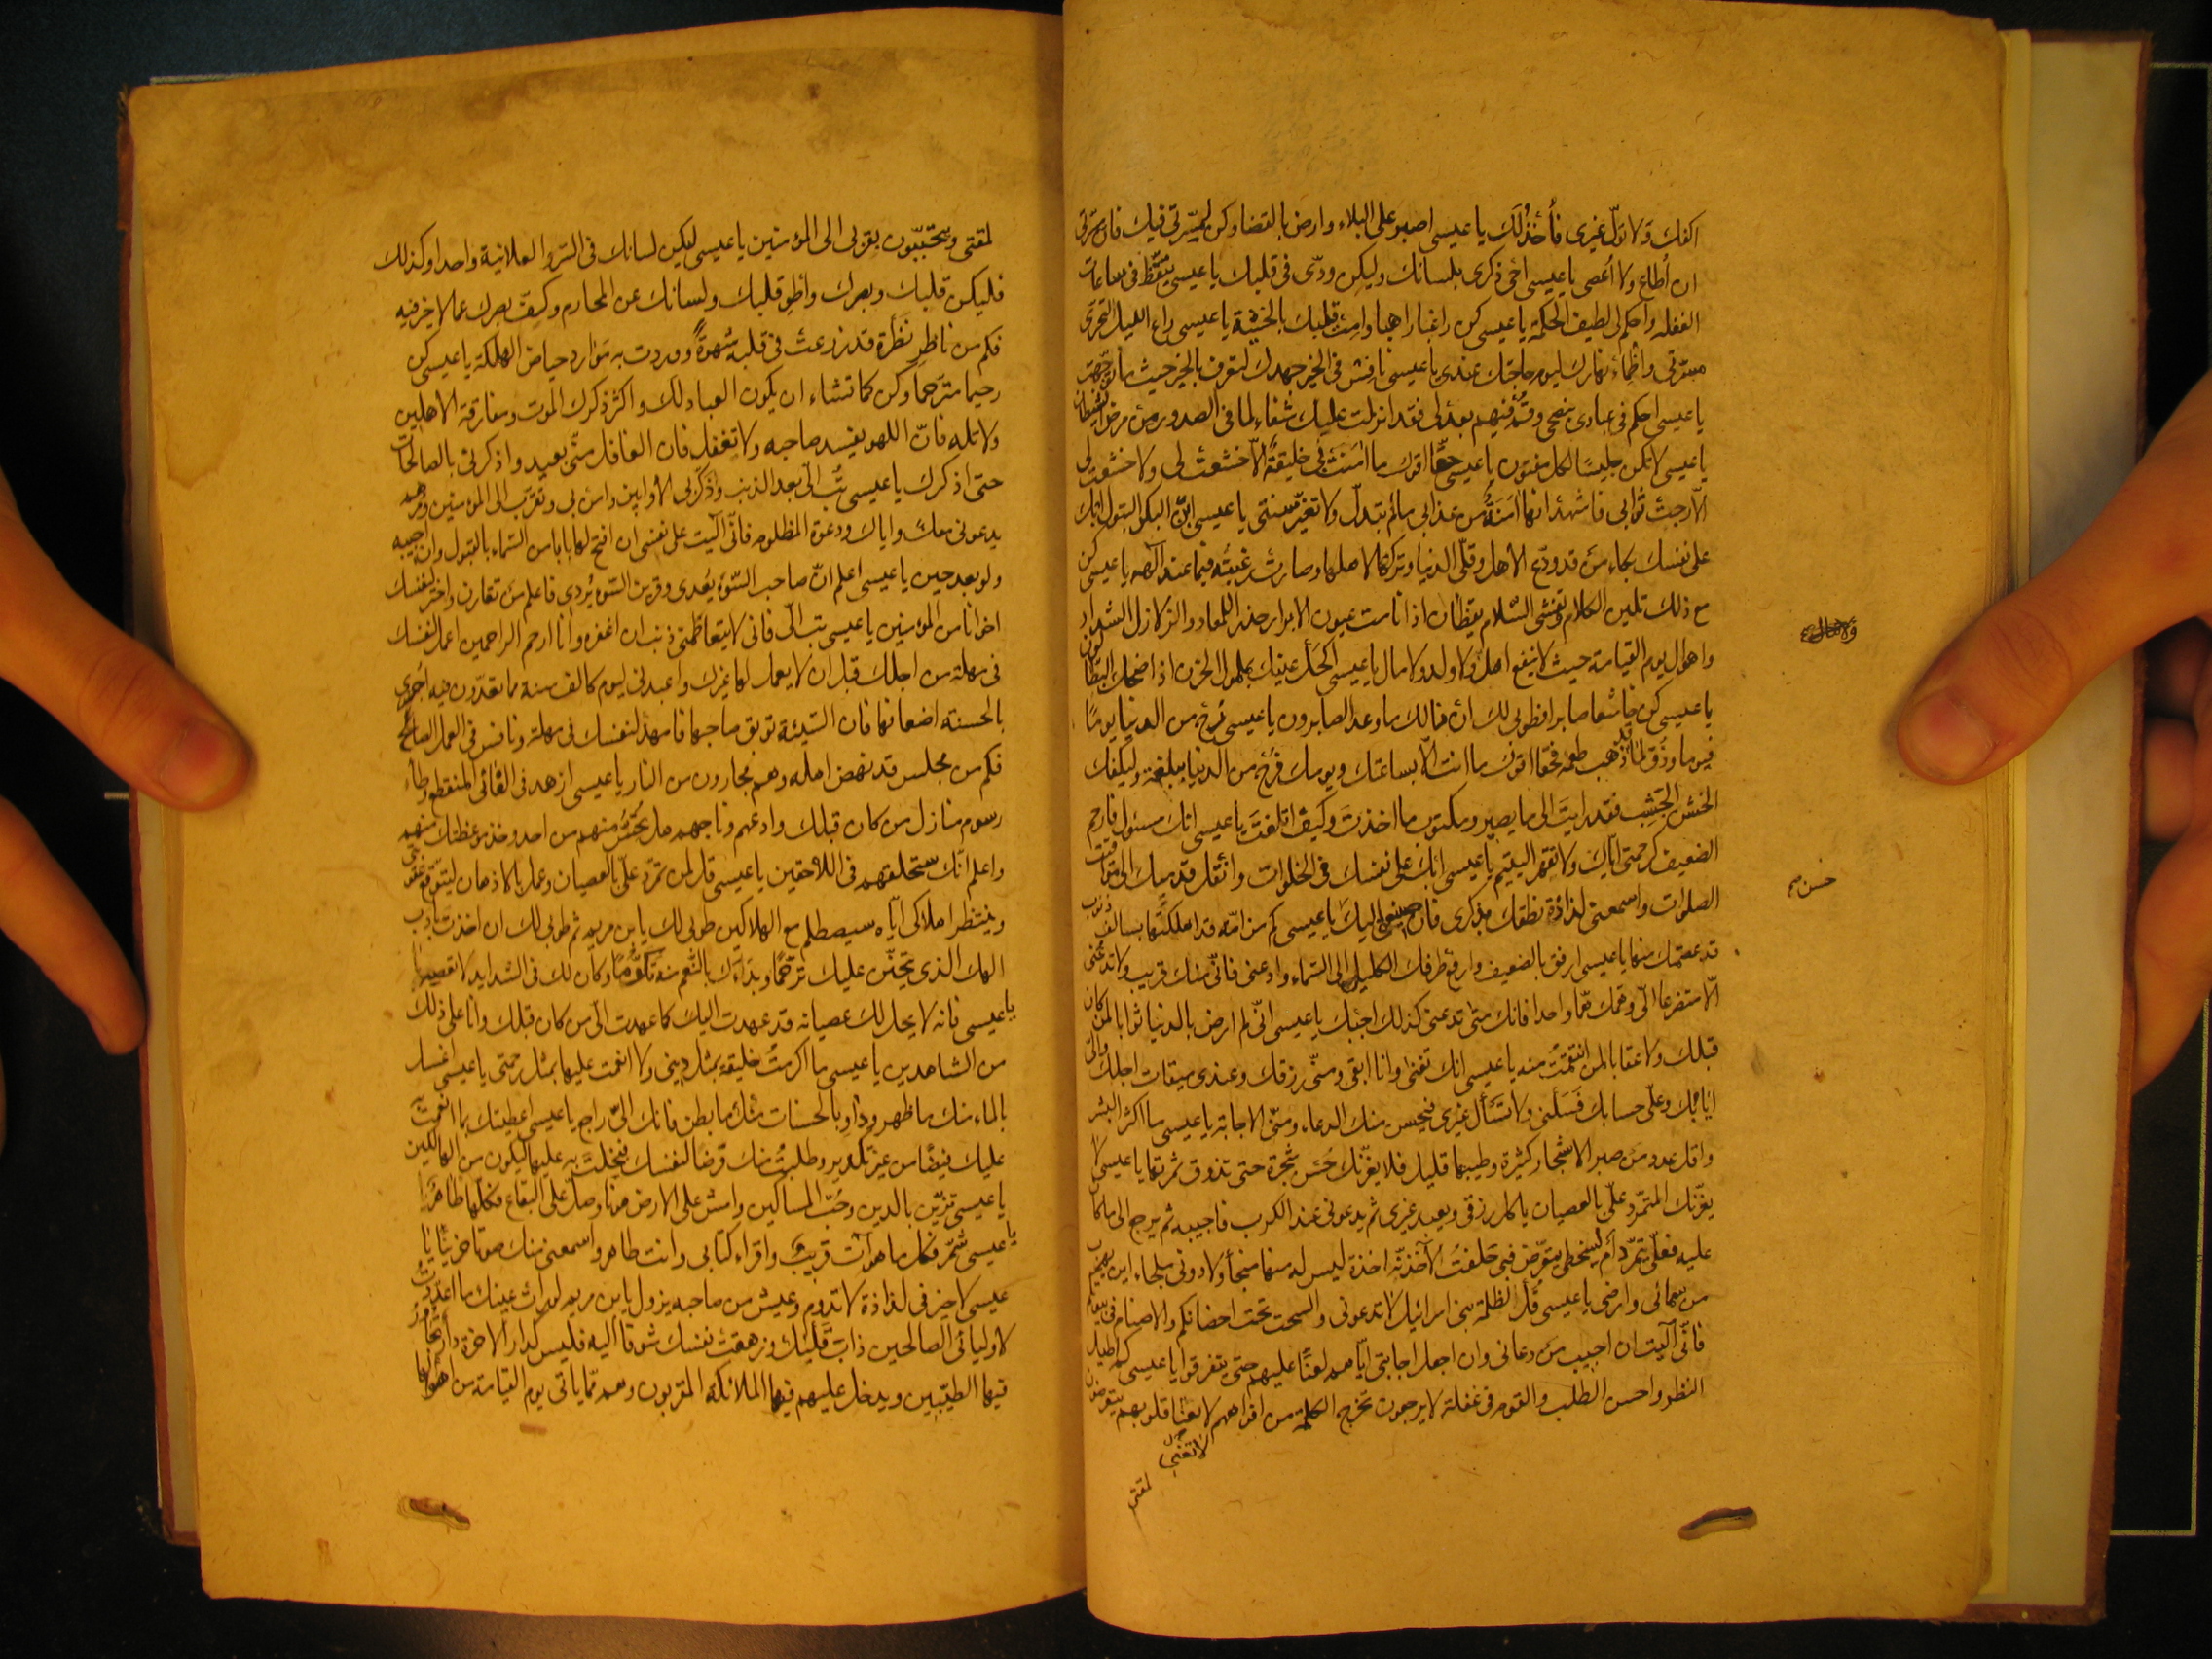 اكفك ولا تولّ غيرى فأخذلك يا عيسى اصبر على البلاء وارض بالقضا وكن لمسرّتى فيك فان مسرّتى
ان أطاع ولا أعصى يا عيسى احى ذكرى بلسانك وليكن ودّى فى قلبك يا عيسى تيقّظ فى ساعات
الغفله واحكم لى لطيف الحكمة يا عيسى كن راغبا راهبا وامت قلبك بالخشية يا عيسى راع الليل لتحرى
مسرّتى واظمأ نهارك ليوم حاجتك عندى يا عيسى نافس فى الخير جهدك لتعرف بالخير حيث ما توجّهت
يا عيسى احكم فى عبادى بنصحى وقم فيهم بعدلى فقد انزلت عليك شفاء لما فى الصدور من مرض الشيطان
يا عيسى لا تكن جليسًا لكل مفتون يا عيسى حقّا اقول ما امنت بى خليقة الّا خشعت لى ولا خشعت لى
الّا رجت ثوابى فاشهد انها امنة من عذابى ما لم تبدل ولا تغيّر سنتى يا عيسى ابن البكر البتول ابك
على نفسك بكاء من قد ودّع الأهل وقلّى الدنيا وتركها لاهلها وصارت رغبته فيما عند الهه يا عيسى كن
مع ذلك تلين الكلام وتفشى السلام يقظان اذا نامت عيون الابرار حذر اللمعاد والزلازل الشداد
واهوال يوم القيامة حيث لا ينفع اهل ولا ولد ولا مال يا عيسى اكحل عينيك بملمول الحزن اذا ضحك البطّالون
يا عيسى كن خاشعا صابرا فطوبى لك ان نالك ما وعد الصابرون يا عيسى رُح من الدنيا يومًا
فيوما وذُق لما قد ذهب طعمه فحقّا اقول ما انت الّا بساعتك ويومك فرُح من الدنيا ببلغة وليكفك
الخشن الجشب فقد رايت الى ما يصير ومكتوب ما اخذت وكيف اتلفت يا عيسى انك مسئول فارحم
الضعيف كرحمتى ايّاك ولا تقهر اليتيم يا عيسى ابك على نفسك فى الخلوات وانقل قدميك الى مواقيت
الصلوات واسمعنى لذاذة نطقك بذكرى فان صنيعى اليك حسن يا عيسى كم من امّه قد اهلكتها بسالف ذنوب
قد عصمتك منها يا عيسى ارفق بالضعيف وارفع طرفك الكليل الى السّماء وادعنى فانّى منك قريب ولا تدعنى
الّا متضرعا الىّ وهمّك همّا واحدا فانك متى تدعنى كذلك اجبك يا عيسى انّى لم ارض بالدنيا ثوابا لمن كان
قبلك ولا عقابا لمن انتقمت منه يا عيسى انك تفنى وانا ابقى ومنّى رزقك وعندى ميقات اجلك والىّ
ايابك وعلىّ حسابك فسلنى ولا تسأل غيرى فيحسن منك الدعاء ومنّى الاجابة يا عيسى ما اكثر البشر
واقل عدد من صبر الاشجار كثيرة وطيبها قليل فلا يغرّنك حُسن شجرة حتى تذوق ثمرتها يا عيسى لا
يغرّنك المتمرّد علىّ بالعصيان ياكل رزقى ويعبد غيرى ثم يدعونى عند الكرب فاجيبه ثم يرجع الى ما كان
عليه فعلىّ يتمرّد أم لسخطى يتعرّض فبى حلفتُ لآخذنّه اخذة ليس له منها منجأ ولا دونى ملجاء اين يهرب
من سمائى وارضى يا عيسى قل لظلمة بنى اسرائيل لا تدعونى والسحت تحت احضانكم والاصنام فى بيوتكم
فانّى آليت ان اجيب من دعانى وان اجعل اجابتى ايّاهم لعنًا عليهم حتى يتفرقوا يا عيسى كم اطيل
النظر واحسن الطلب والقوم فى غفلة لا يرجعون تخرج الكلمة من افواههم لا تعيها قلوبهم يتعرضون
لمقتى
لمقتى ويتحبّبون بقربى الى المؤمنين يا عيسى ليكن لسانك فى السّر والعلانية واحدا وكذلك
فليكن قلبك وبصرك وأطو قلبك ولسانك عن المحارم وكف بصرك عما لا خير فيه
فكم من ناظر نَظْرَة قد زرعت فى قلبه شهوةً ووردت به موارد حياض الهلكة يا عيسى كن
رحيما مترحما وكن كما تشاء ان يكون العباد لك واكثر ذكرك الموت ومفارقة الاهلين
ولا تله فانّ اللهو يفسد صاحبه ولا تغفل فان الغافل منّى بعيد واذكرنى بالصالحات
حتى اذكرك يا عيسى تُب الىّ بعد الذنب وذكّر بى الأوابين وامن بى وتقرّب الى المؤمنين ومرهم
يدعونى معك واياك ودعوة المظلوم فانّى آليت على نفسى ان افتح لها بابا من السّماء بالقبول وان اجيبه
ولو بعد حين يا عيسى اعلم انّ صاحب السّوء يُعدى وقرين السّوء يُردى فاعلم من تقارن واختر لنفسك
اخوانا من المؤمنين يا عيسى تب الىّ فانى لا يتعاظمنى ذنب ان اغفره وانا ارحم الراحمين اعمل لنفسك
فى مهلة من اجلك قبل ان لا يعمل لها غيرك واعبدنى ليوم كالف سنة مما تعدّون فيه اجزى
بالحسنة اضعافها فان السّيئة توبق صاحبها فامهد لنفسك فى مهلة ونافس فى العمل الصالح
فكم من مجلس قد نهض اهله وهم مجارون من النار يا عيسى ازهد فى الفانى المنقطع وطأ
رسوم منازل من كان قبلك وادعهم وناجهم هل تُحسّ منهم من احد وخذ موعظتك منهم
واعلم انّك ستلحقهم فى اللاحقين يا عيسى قل لمن تمرّد علىّ بالعصيان وعمل بالادهان ليتوقّع عقوبتى
وينتظر اهلاكى ايّاه سيصطلم مع الهالكين طوبى لك يا بن مريم ثم طوبى لك ان اخذت بادب
الهك الذى يتحنّن عليك ترحّمًا وبدأك بالنّعم منه تكرّمًا وكان لك فى الشدايد لا تعصه
يا عيسى فانه لا يحل لك عصيانه قد عهدت اليك كما عهدت الى من كان قبلك وانا على ذلك
من الشاهدين يا عيسى ما اكرمتُ خليقة بمثل دينى ولا انعمت عليها بمثل رحمتى يا عيسى اغسل
بالماء منك ما ظهر وداوِ بالحسنات منك ما بطن فانك الىّ راجع يا عيسى اعطيتك بما انعمت به
عليك فيضًا من غير تكدير وطلبتُ منك قرضا لنفسك فبخلت به عليها لتكون من الهالكين
يا عيسى تزيّن بالدين وحُبّ المساكين وامش على الارض هونا وصلّ على البقاع فكلّها طاهر
يا عيسى شمّر فكل ما هو آت قريب واقراء كتابى وانت طاهر واسمعنى منك صوتا حزينًا يا
عيسى لا خير فى لذاذة لا تدوم وعيش من صاحبه يزول يا بن مريم لو رأت عينك ما اعددت
لاوليائى الصالحين ذاب قلبك وزهقت نفسك شوقا اليه فليس كدار الاخرة دار تجاور
فيها الطيّبين ويدخل عليهم فيها الملائكة المقرّبون وهم ممّا ياتى يوم القيامة من اهوالها